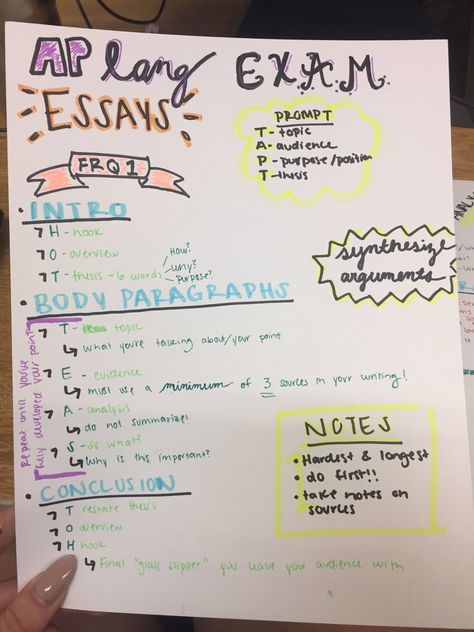 AP lang EXAM
ESSAYS
PROMPT
T - topic
A - audience
P - purpose/position
T - thesis
FRQ 1
• INTRO
H - hook
O - overview
T - thesis - 6 words
How?
why?
purpose?
synthesize
arguments
• BODY PARAGRAPHS
Repeat until you've
fully developed your point
T - topic
what you're talking about/your point
E - evidence
must use a minimum of 3 sources in your writing!
A - analysis
do not summarize!
S - so what?
Why is this important?
NOTES
• Hardest & longest
• do first!!
• take notes on
sources
• CONCLUSION
T restate thesis
O overview
H hook
Final "glass slipper" you leave your audience with